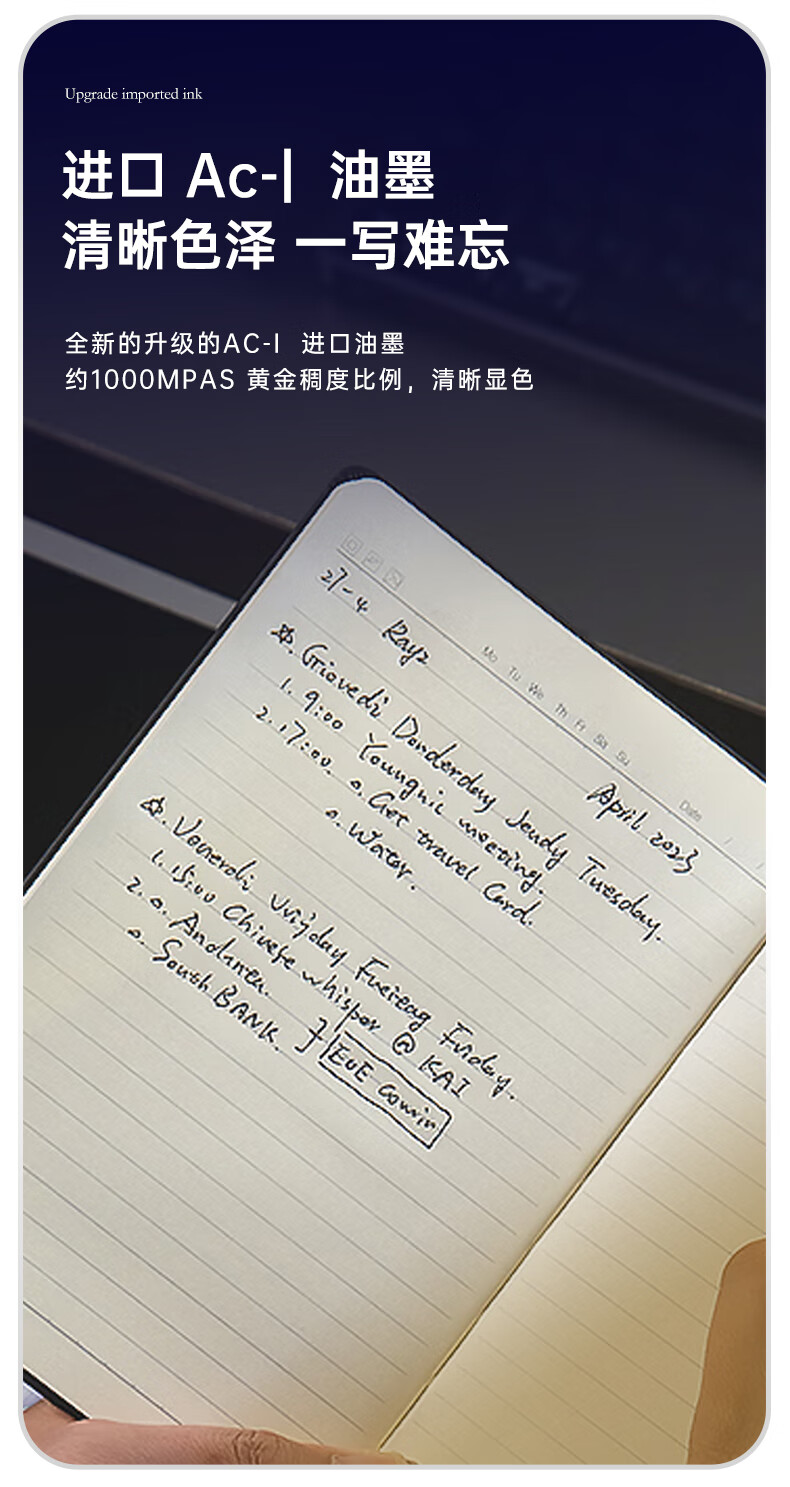 Upgrade imported ink
进口 Ac-| 油墨
清晰色泽 一写难忘
全新的升级的AC-I 进口油墨
约1000MPAS 黄金稠度比例，清晰显色
27-4 Rayz
Mo Tu We Th Fr Sa Su
April 2023
Date / /
Giovedi Donderday Jeudy Tuesday.
1. 9:00 Youngnic meeting.
2. 17:00. a. Get travel Card.
a. Water.
Venerdi Vrijday Fueireag Friday.
1. 15:00 Chinese whisper @ KAI
2. a. Andanrea.
a. South BANK.
EUE Gowin